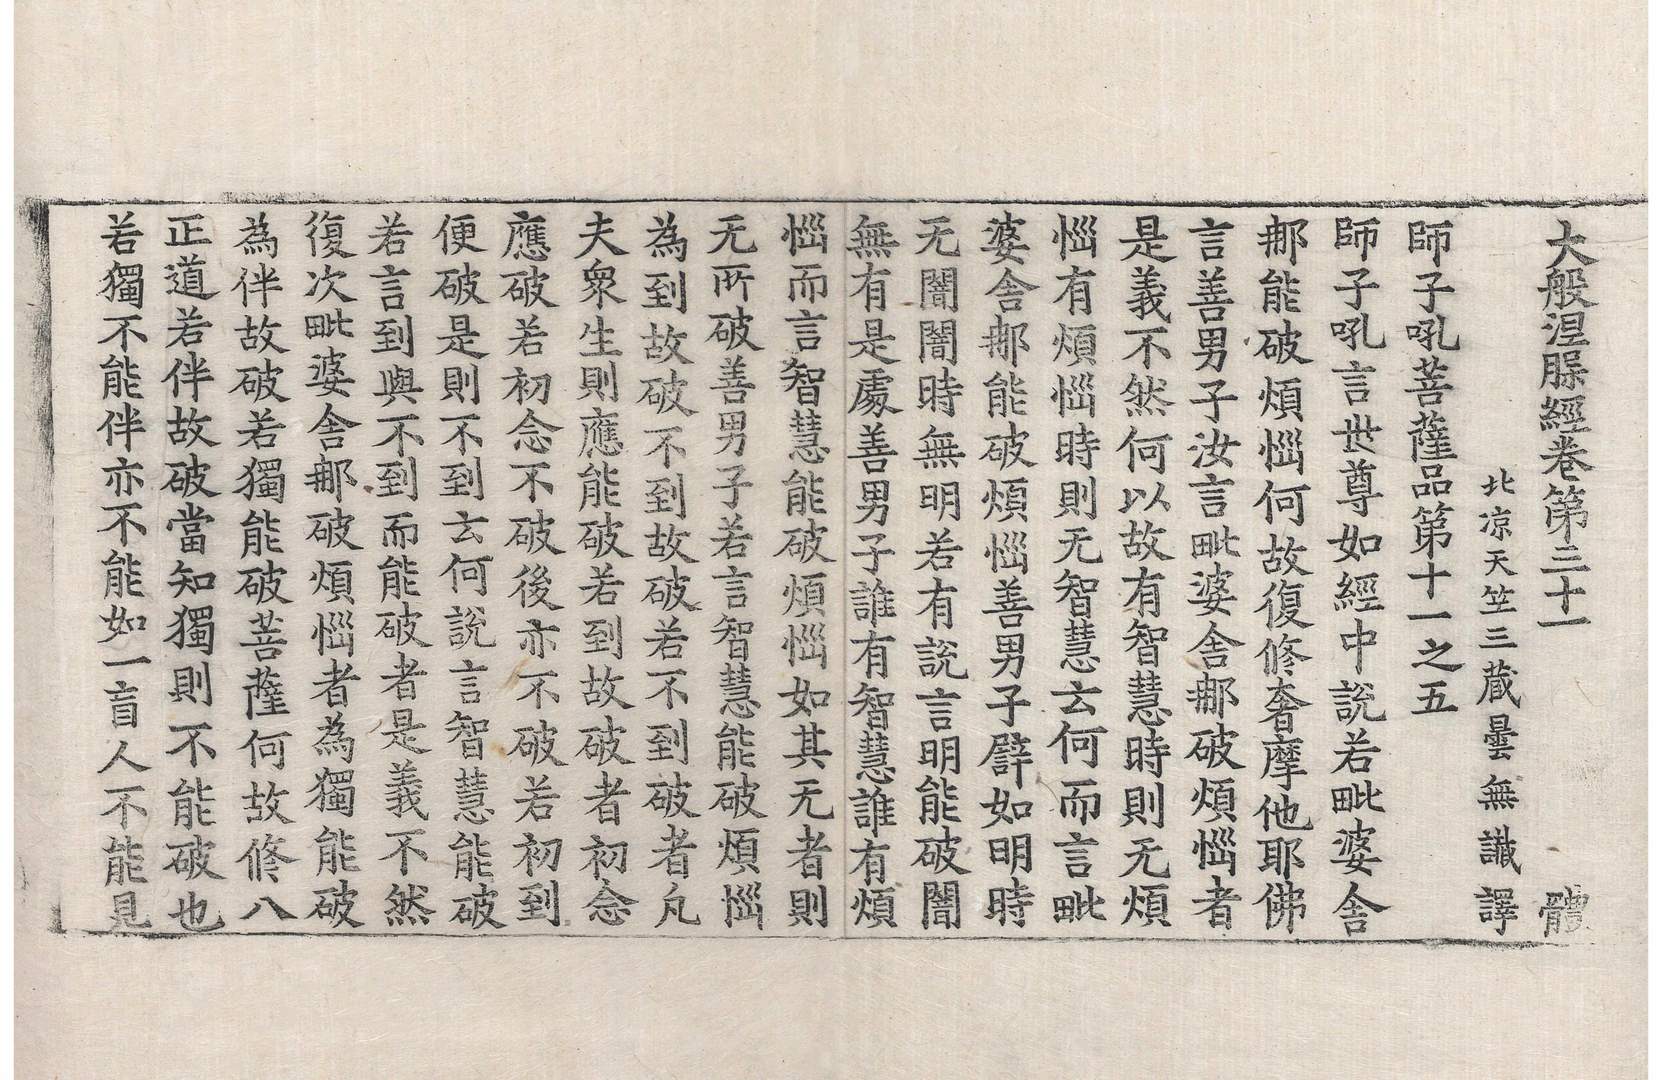 大般涅槃經卷第三十一　體
北涼天竺三藏曇無讖譯
師子吼菩薩品第十一之五
師子吼言世尊如經中說若毗婆舍
那能破煩惱何故復修奢摩他耶佛
言善男子汝言毗婆舍那破煩惱者
是義不然何以故有智慧時則无煩
惱有煩惱時則无智慧云何而言毗
婆舍那能破煩惱善男子譬如明時
无闇闇時無明若有說言明能破闇
無有是處善男子誰有智慧誰有煩
惱而言智慧能破煩惱如其无者則
无所破善男子若言智慧能破煩惱
為到故破不到故破若不到破者凡
夫眾生則應能破若到故破者初念
應破若初念不破後亦不破若初到
便破是則不到云何說言智慧能破
若言到與不到而能破者是義不然
復次毗婆舍那破煩惱者為獨能破
為伴故破若獨能破菩薩何故修八
正道若伴故破當知獨則不能破也
若獨不能伴亦不能如一盲人不能見